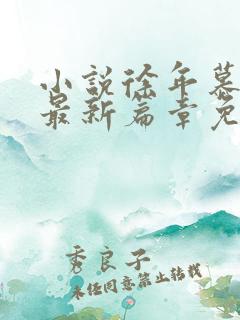 小说徐年慕
最新篇章免
秀良子
未经同意禁止转载